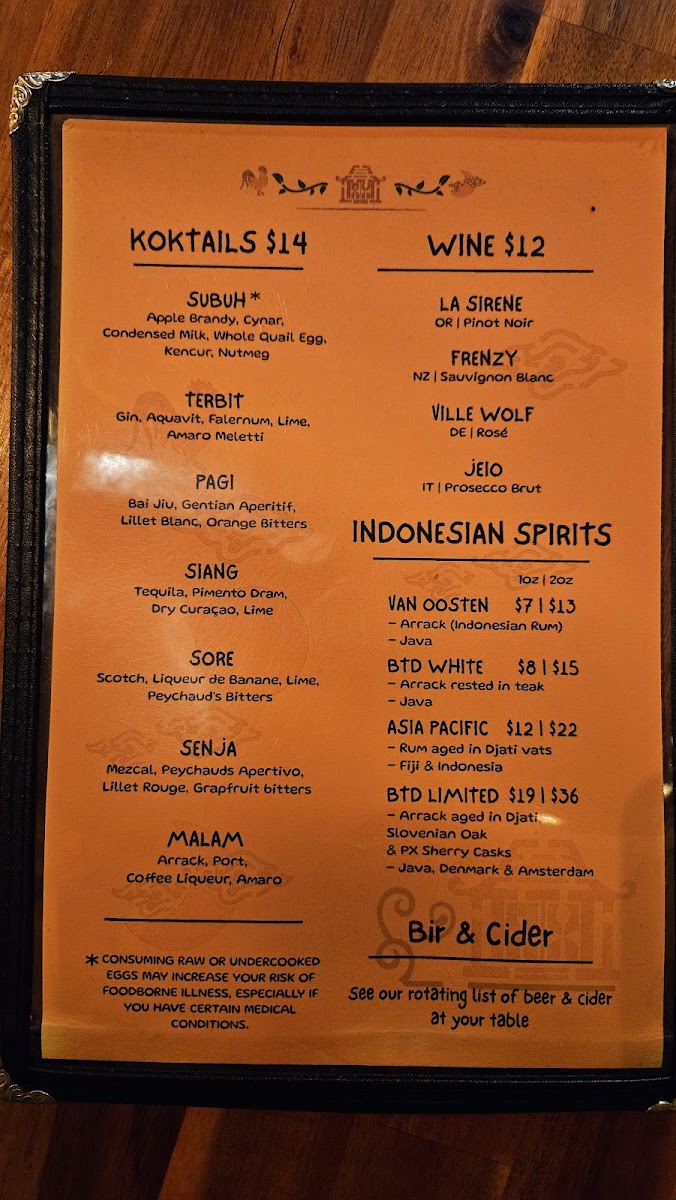 KOKTAILS $14
SUBUH*
Apple Brandy, Cynar,
Condensed Milk, Whole Quail Egg,
Kencur, Nutmeg
TERBIT
Gin, Aquavit, Falernum, Lime,
Amaro Meletti
PAGI
Bai Jiu, Gentian Aperitif,
Lillet Blanc, Orange Bitters
SIANG
Tequila, Pimento Dram,
Dry Curaçao, Lime
SORE
Scotch, Liqueur de Banane, Lime,
Peychaud's Bitters
SENJA
Mezcal, Peychauds Apertivo,
Lillet Rouge, Grapfruit bitters
MALAM
Arrack, Port,
Coffee Liqueur, Amaro
* CONSUMING RAW OR UNDERCOOKED
EGGS MAY INCREASE YOUR RISK OF
FOODBORNE ILLNESS, ESPECIALLY IF
YOU HAVE CERTAIN MEDICAL
CONDITIONS.
WINE $12
LA SIRENE
OR | Pinot Noir
FRENZY
NZ | Sauvignon Blanc
VILLE WOLF
DE | Rosé
JEIO
IT | Prosecco Brut
INDONESIAN SPIRITS
1oz | 2oz
VAN OOSTEN $7 | $13
- Arrack (Indonesian Rum)
- Java
BTD WHITE $8 | $15
- Arrack rested in teak
- Java
ASIA PACIFIC $12 | $22
- Rum aged in Djati vats
- Fiji & Indonesia
BTD LIMITED $19 | $36
- Arrack aged in Djati,
Slovenian Oak
& PX Sherry Casks
- Java, Denmark & Amsterdam
Bir & Cider
See our rotating list of beer & cider
at your table